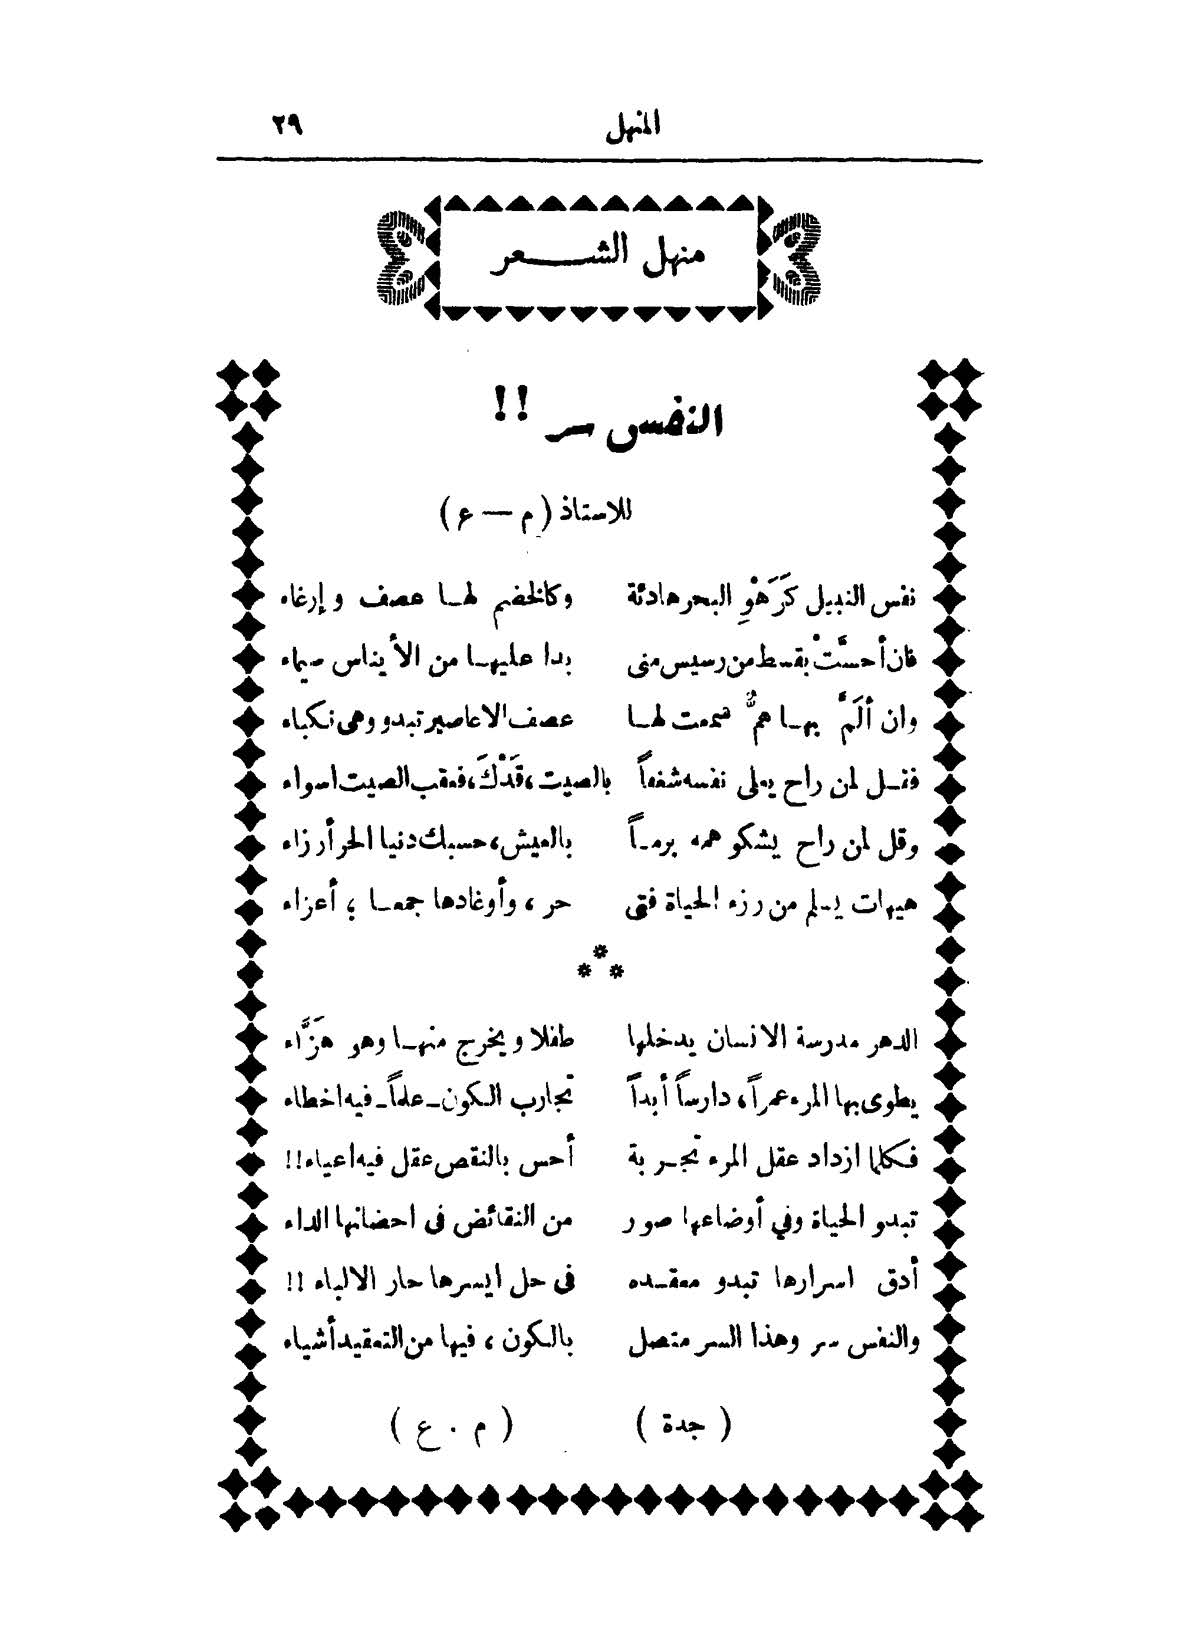 المنهل ٢٩
منهل الشعر
النفس سر !!
للاستاذ (م — ع)
نفس النبيل كَرَهْوِ البحر هادئة وكالخضم لها عصف و إرغاء
فان أحسَّتْ بقسط من رسيس منى بدا عليها من الأيناس سيماء
وان ألَمَّ بها همٌّ سمعت لها عصف الاعاصير تبدو وهى نكباء
فقل لمن راح يعلى نفسه شغفاً بالصيت، قَدْكَ، فعقب الصيت اسواء
وقل لمن راح يشكو همه برماً بالعيش، حسبك دنيا الحر أرزاء
هيهات يسلم من رزء الحياة فتى حر، وأوغادها جمعا ؛ أعزاء
الدهر مدرسة الانسان يدخلها طفلا ويخرج منها وهو هَزَّاء
يطوى بها المرء عمراً، دارساً أبداً تجارب الكون ـ علماً ـ فيه اخطاء
فكلما ازداد عقل المرء تجربة أحس بالنقص عقل فيه اعياء!!
تبدو الحياة وفي أوضاعها صور من النقائض فى احضانها الداء
أدق اسرارها تبدو معقده فى حل ايسرها حار الالباء !!
والنفس سر وهذا السر متصل بالكون، فيها من التعقيد أشياء
( جدة ) ( م . ع )